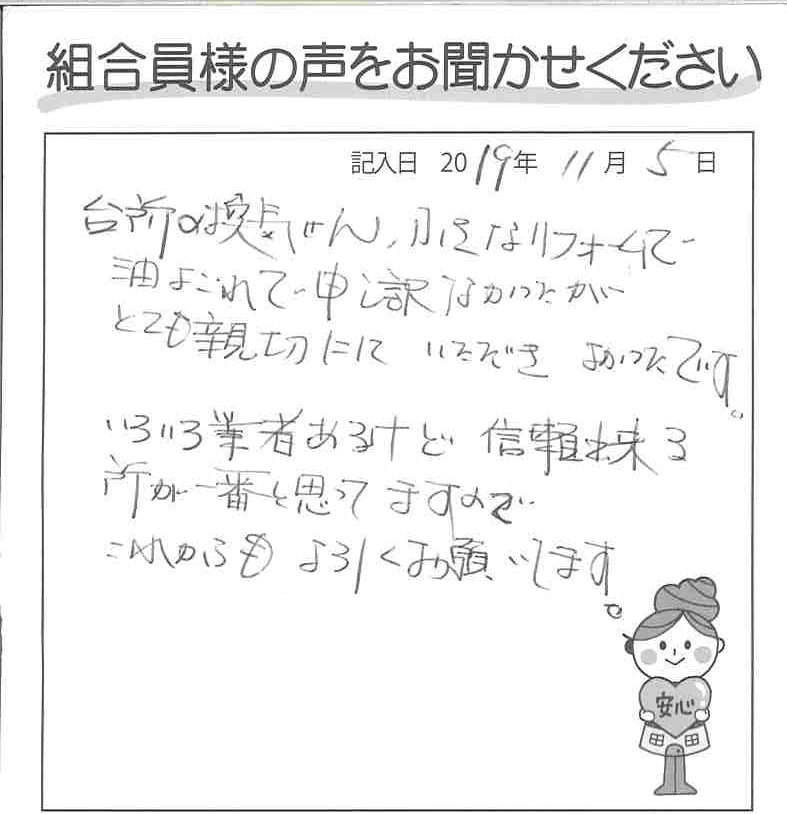 組合員様の声をお聞かせください
記入日 2019年 11月 5日
台所の換気せん、小さなリフォームで
油よごれで申し訳なかったが
とても親切にして いただき よかったです。
いろいろ業者あるけど 信頼出来る
所が一番と思ってますので
これからも よろしくお願いします。
安心